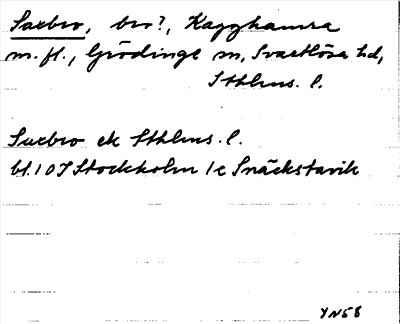 Saxbro, bro?, Kagghamra
m.fl., Grödinge sn, Svartlösa hd,
Sthlms. l.
Saxbro ek Sthlms. l.
bl. 10I Stockholm 1c Snäckstavik
YN58